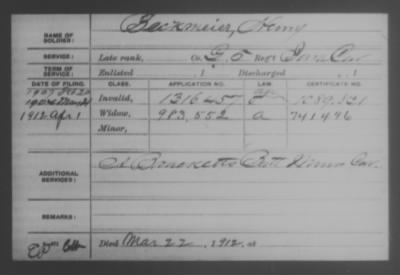 NAME OF SOLDIER: Beckmeier, Henry
SERVICE: Late rank, Co. G, 5 Reg't Iowa Cav
TERM OF SERVICE: Enlisted , 1 Discharged , 1
DATE OF FILING. CLASS. APPLICATION NO. LAW. CERTIFICATE NO.
1907 Invalid, 1316457
Widow, 983,552 a 741496
1912 Apr 1 Minor,
ADDITIONAL SERVICES: Batt Cav
REMARKS:
Died Mar 22, 1912, at